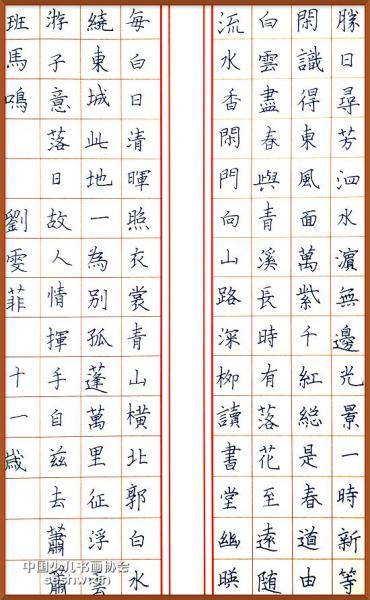 勝日尋芳泗水濵無邊光景一時新等
閑識得東風面萬紫千紅総是春道由
白雲盡春與青溪長時有落花至遠随
流水香閑門向山路深柳讀書堂幽暎
每白日清暉照衣裳青山橫北郭白水
繞東城此地一為別孤蓬萬里征浮雲
游子意落日故人情揮手自兹去蕭蕭
班馬鳴 劉雯菲 十一歲
中国少儿书画协会